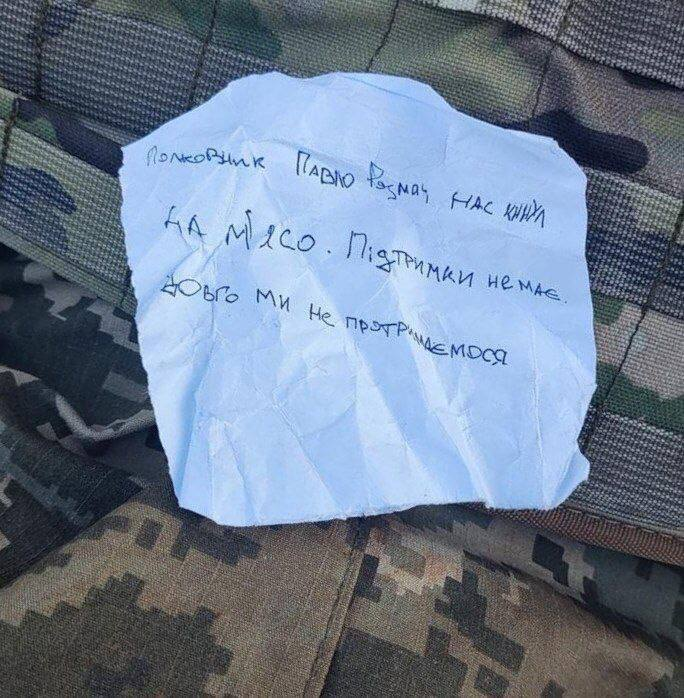 Полковник Павло Розмач нас кинул
на м'ясо. Підтримки немає.
довго ми не протримаємося